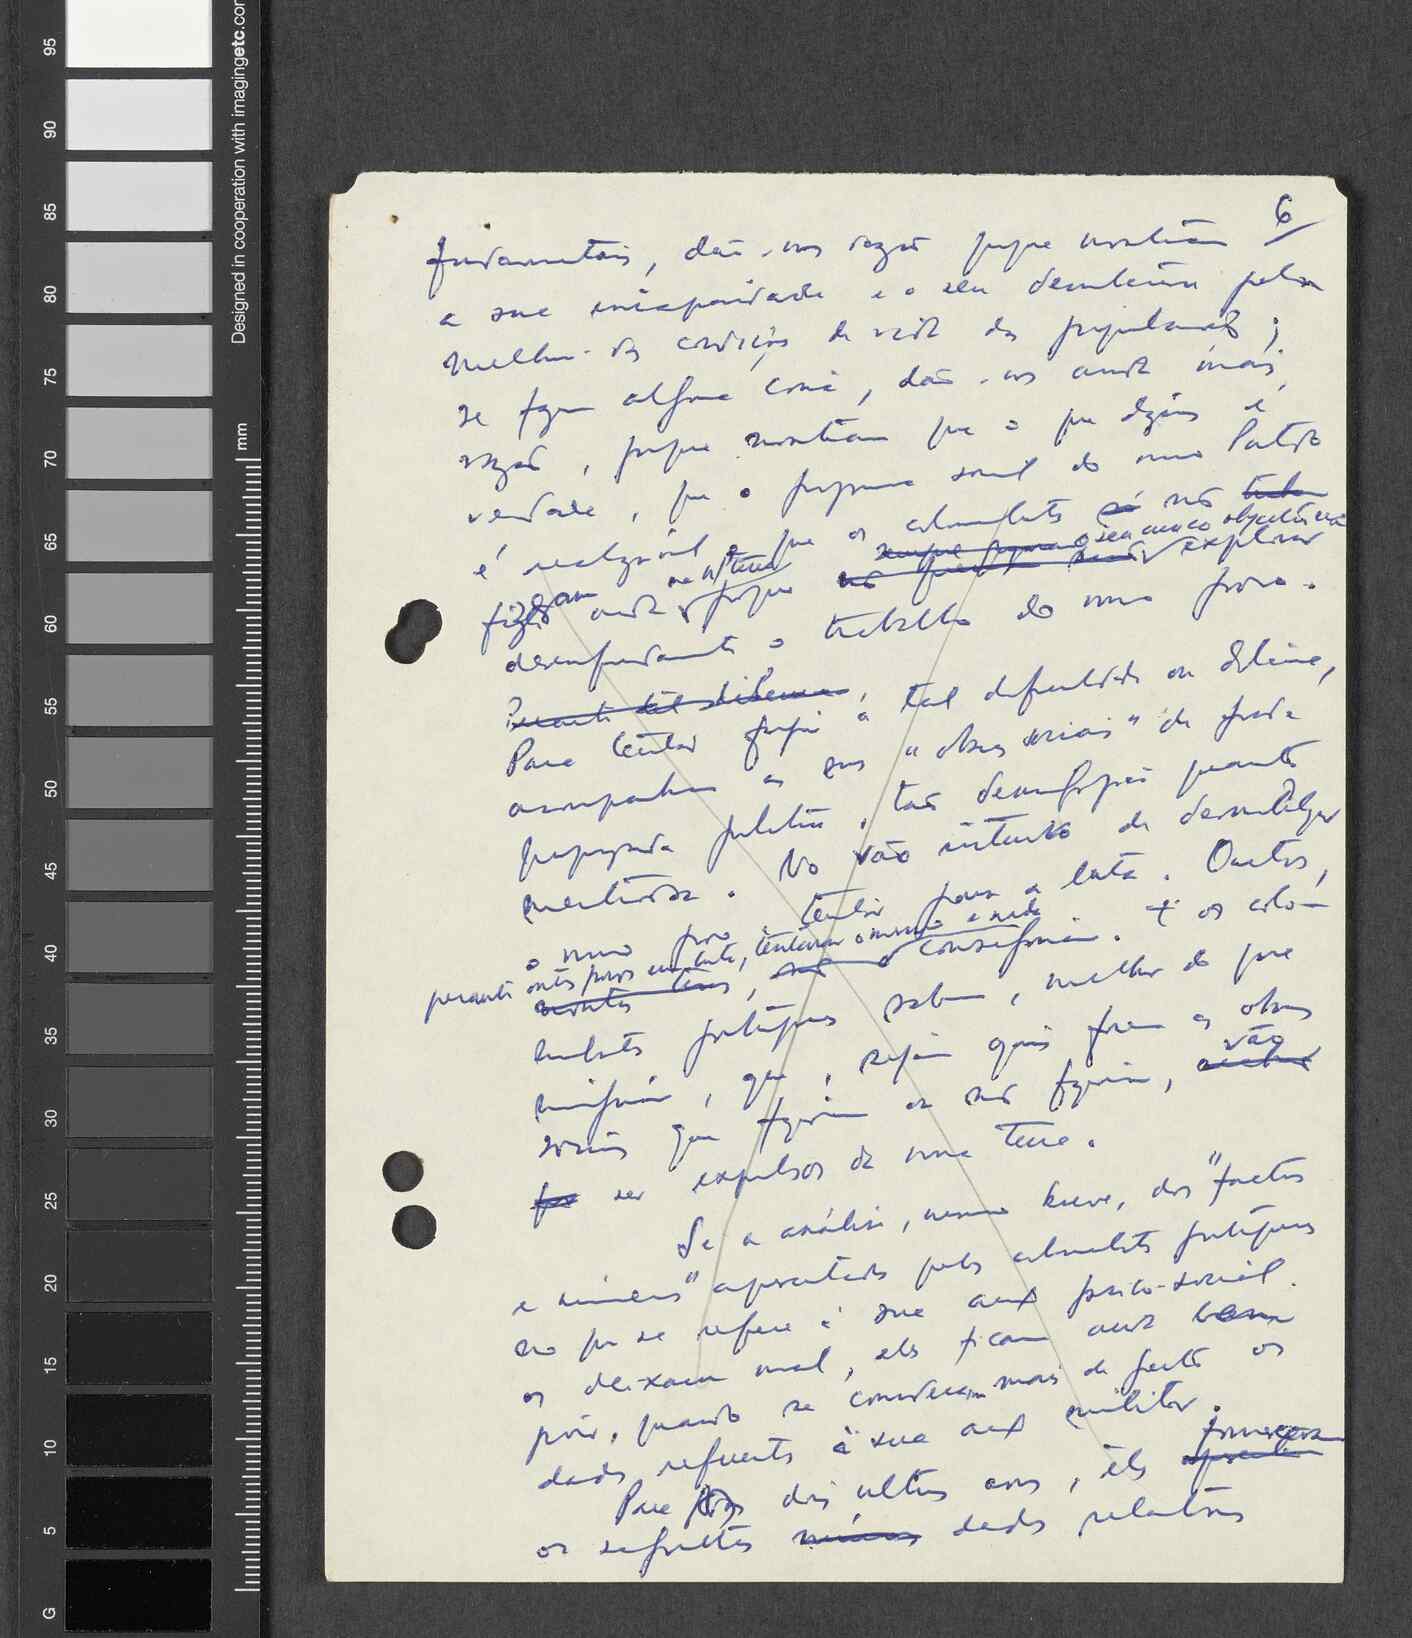 95
90
85
80
75
70
65
60
55
50
45
40
35
30
25
20
15
10
5
G
Designed in cooperation with imagingetc.com
mm
6
fundamentais, dão-nos razão porque mostram
a sua incapacidade e o seu desinteresse pela
melhoria das condições de vida das populações;
se fazem alguma coisa, dão-nos ainda mais
razão, porque mostram que o que dizemos é
verdade, que o programa social do nosso Partido
é realizável e que os colonialistas só não tinham
fizeram ainda na n/ terra porque o seu único objectivo era explorar
desenfreadamente o trabalho do nosso povo.
Perante tal dilema,
Para tentar fugir a tal dificuldade ou dilema,
acompanham as suas "obras sociais" de farta
propaganda política, tão demagógica quanto
mentirosa. No vão intuito de desmobilizar
o nosso povo, tentar parar a luta. Outros,
perante outros povos em luta, tentaram o mesmo e nada
conseguiram. E os colo-
nialistas portugueses sabem, melhor do que
ninguém, que, sejam quais forem as obras
sociais que fizeram ou não fizeram, vão
ser expulsos da nossa terra.
Se a análise, mesmo breve, dos "factos
e números" apresentados pelos colonialistas portugueses
no que se refere à sua acção psico-social
os deixam mal, eles ficam ainda bem
pior, quando se consideram mais de perto os
dados referentes à sua acção militar.
Para dois ultimos anos, eles forneceram
os seguintes dados relativos